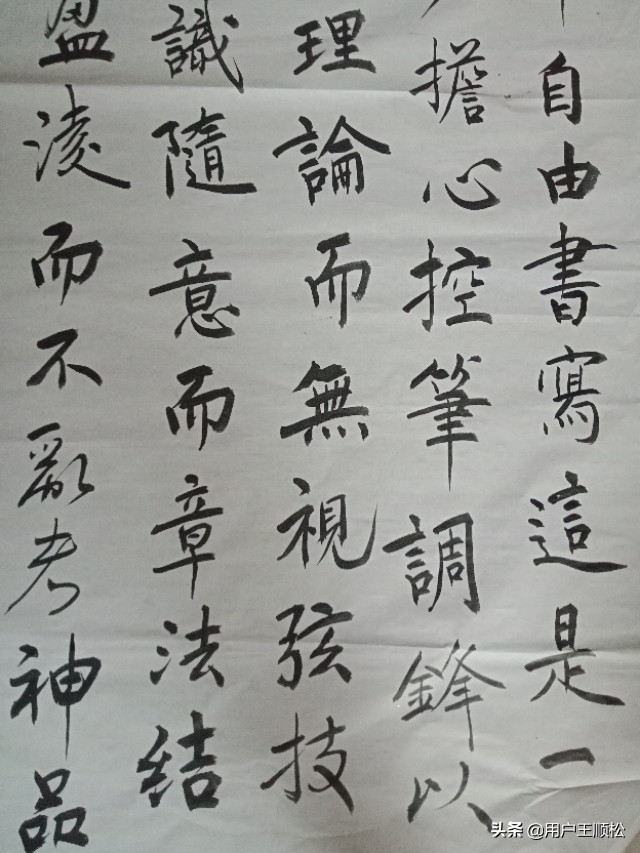 自由書寫這是一
擔心控筆調鋒以
理論而無視弦技
識隨意而章法结
盈淩而不亂者神品
头条 @用户王顺松